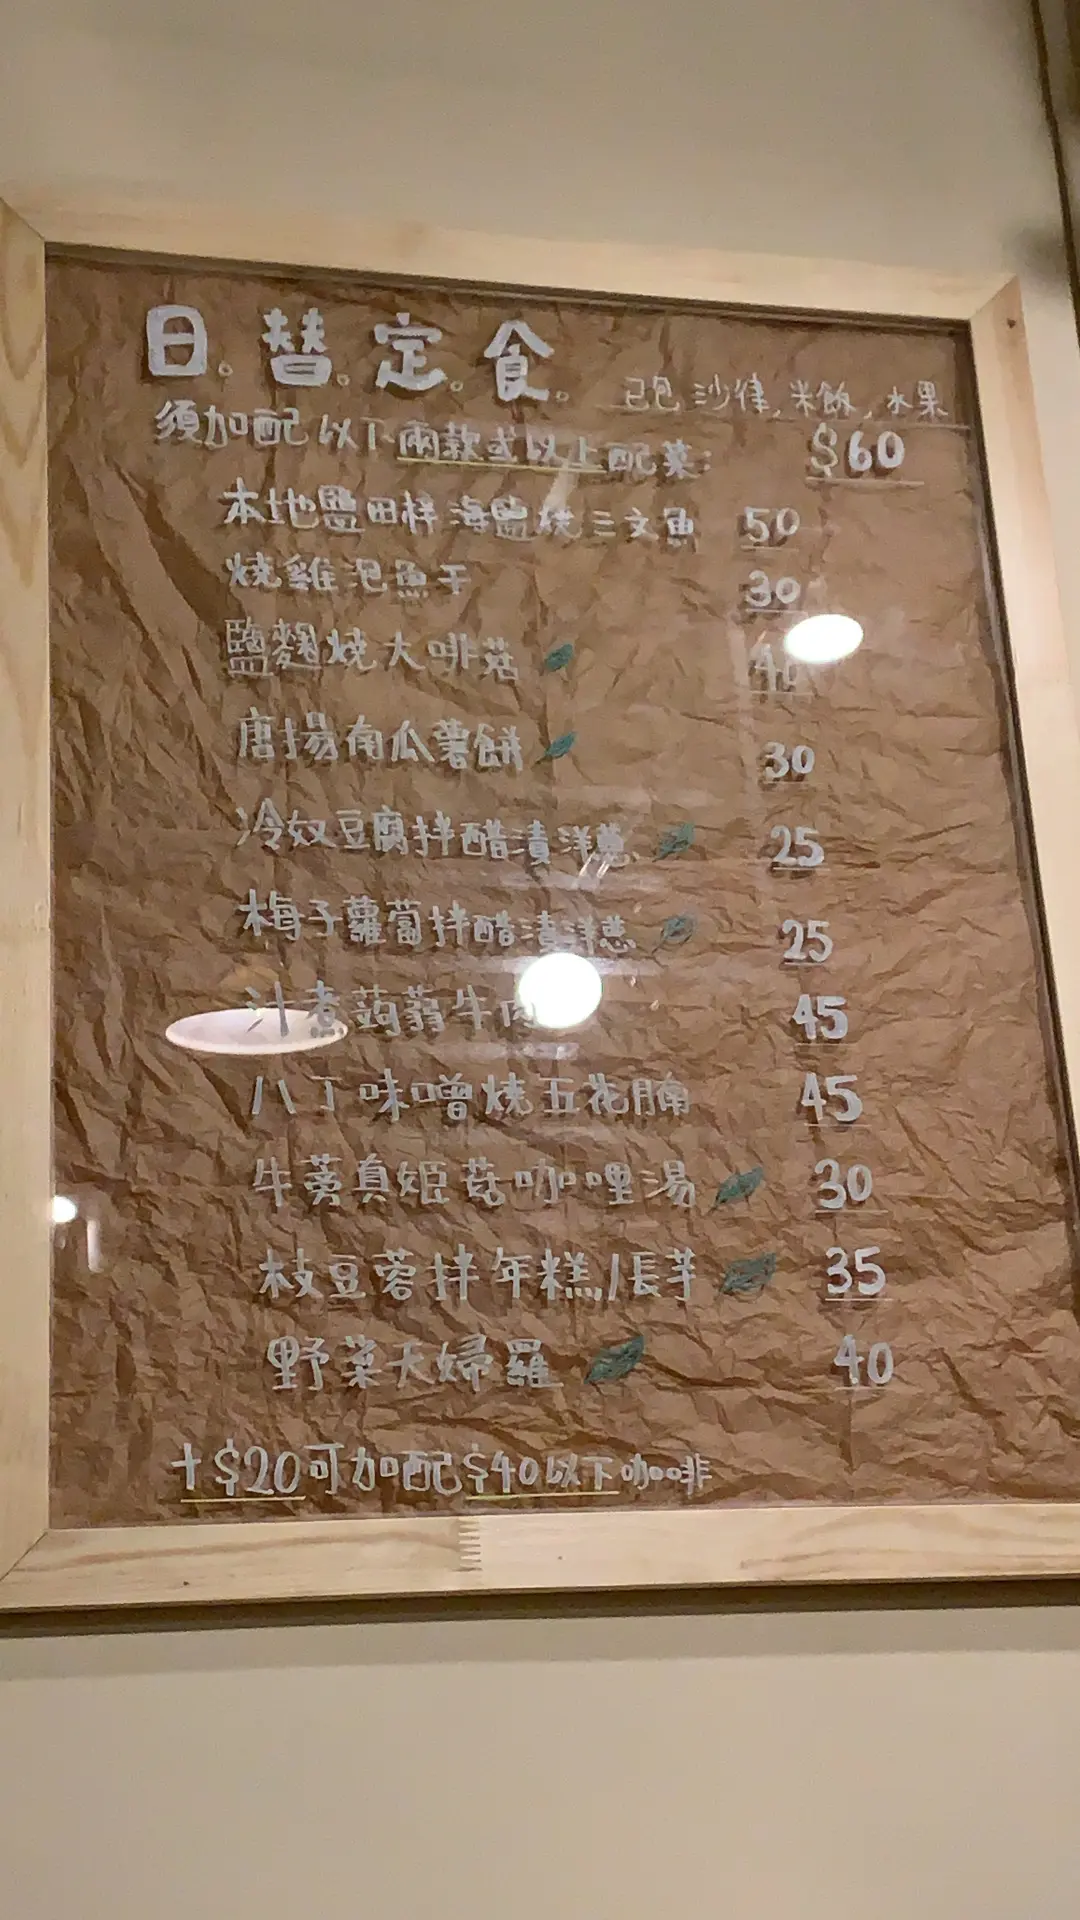 日。替。定。食。
已包沙律,米飯,水果
須加配以下兩款或以上配菜: $60
本地鹽田梓海鹽燒三文魚 50
燒雞泡魚干 30
鹽麴燒大啡菇 40
唐揚南瓜薯餅 30
冷奴豆腐拌醋漬洋蔥 25
梅子蘿蔔拌醋漬洋蔥 25
汁煮蒟蒻牛肉 45
八丁味噌燒五花腩 45
牛蒡真姬菇咖哩湯 30
枝豆蓉拌年糕/長芋 35
野菜天婦羅 40
+$20可加配$40以下咖啡